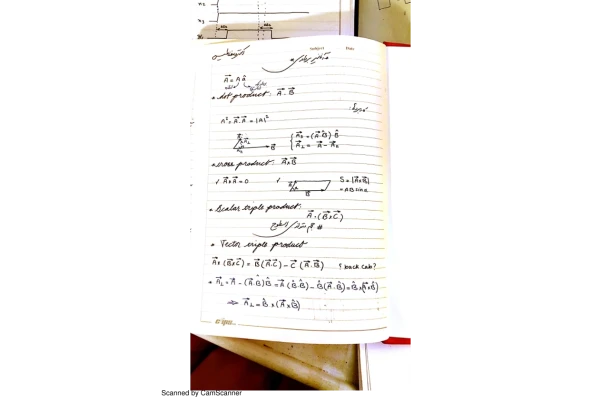 Subject Date
A⃗ = A â
• dot product: A⃗ . B⃗
A² = A⃗ . A⃗ = |A|²
B⃗
A⃗∥ = (A⃗ . B̂) B̂
A⃗⊥ = A⃗ - A⃗∥
• cross product: A⃗ × B⃗
A⃗ × A⃗ = 0
S = |A⃗ × B⃗|
= AB sin α
B⃗
• Scalar triple product:
A⃗ . (B⃗ × C⃗)
• Vector triple product
A⃗ × (B⃗ × C⃗) = B⃗ (A⃗ . C⃗) - C⃗ (A⃗ . B⃗) ? back cab?
A⃗⊥ = A⃗ - (A⃗ . B̂) B̂ = A⃗ (B̂ . B̂) - B̂ (A⃗ . B̂) = B̂ × (A⃗ × B̂)
⇒ A⃗⊥ = B̂ × (A⃗ × B̂)
Scanned by CamScanner